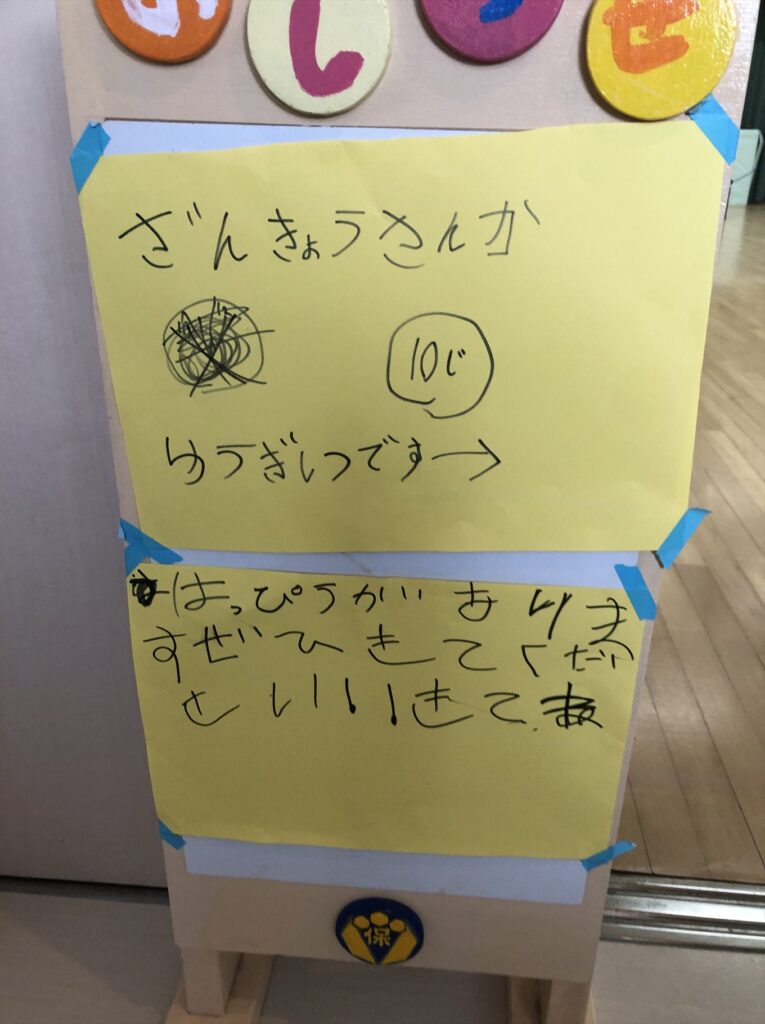 おしらせ
ざんきょうさんか
10じ
ゆうぎしつです→
はっぴょうがありま
すぜひきてくだ
さいいいきて
保